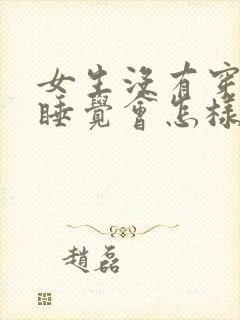 女生沒有穿
睡覺會怎樣
趙磊